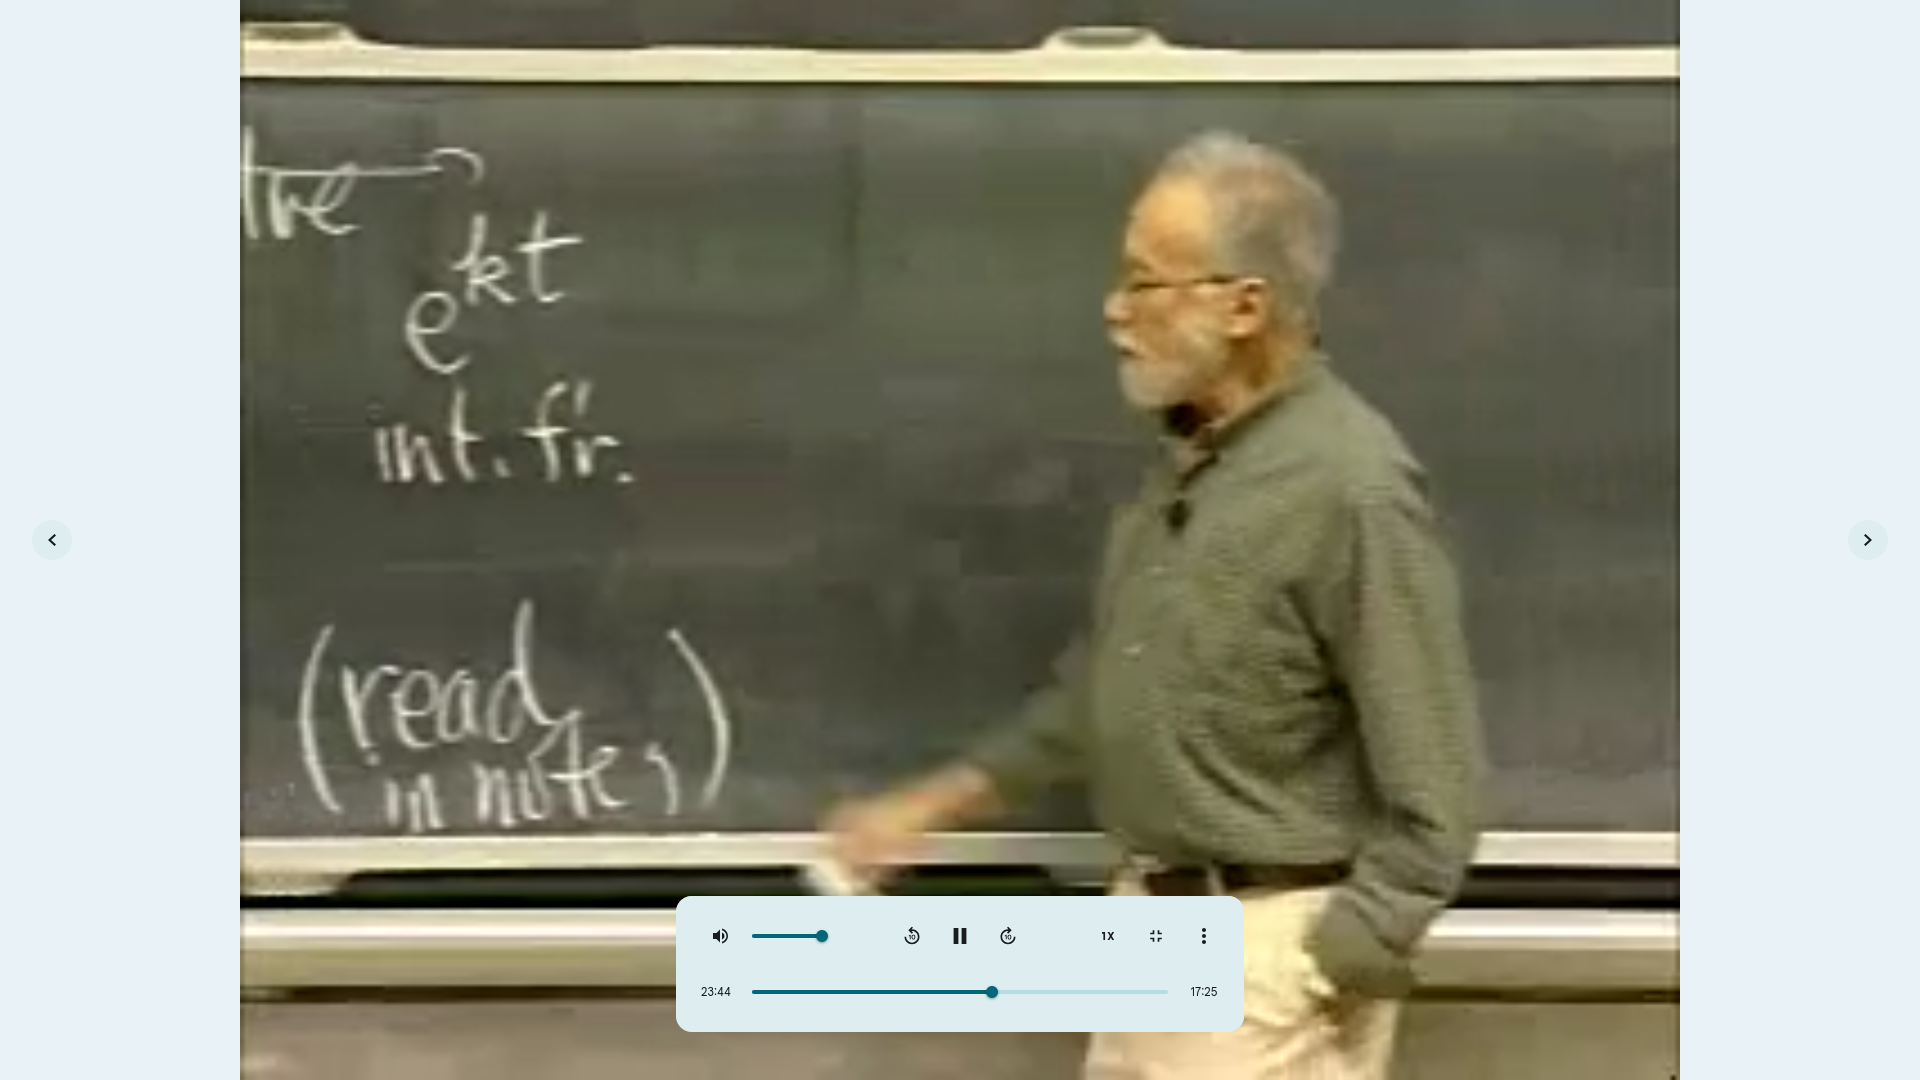 e^kt
int. f'r.
(read
in notes)
1X
23:44
17:25